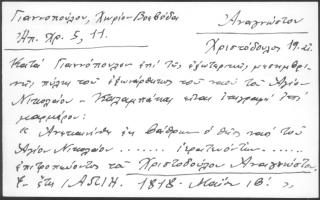 Γιαννοπούλου, Χωρίον Βοεβόδα Ἀναγνώστου
Ἀπ. Χρ. 5, 11. Χριστόδουλος 19 αἰ.
Κατά Γιαννόπουλον ἐπί τῆς ἐξωτερικῆς μεσημβρι-
νῆς πύλης τοῦ ἐξωνάρθηκος τοῦ ναοῦ τοῦ Ἁγίου
Νικολάου - Καλαμπάκας εἶναι ἐπιγραφή ἐπί
μαρμάρου:
« Ἀνεκαινίσθη ἐκ βάθρων ὁ θεῖος ναός τοῦ
Ἁγίου Νικολάου ....... ἱερατεύοντος.......
ἐπιτροπεύοντος τοῦ Χριστοδούλου Ἀναγνώστου.
ἔτει ͵ΑΩΙΗ. 1818. Μαΐου ΙΒ΄. »